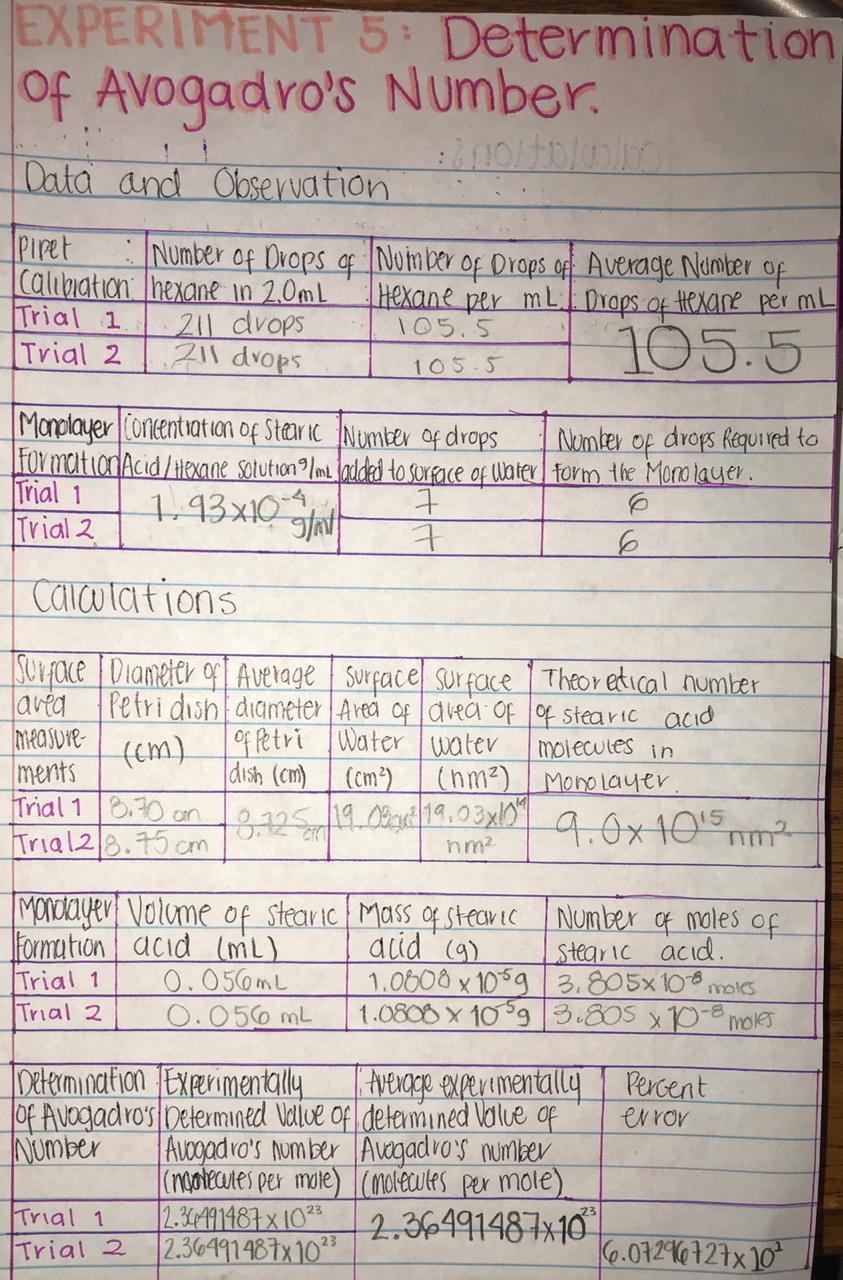 EXPERIMENT 5: Determination
of Avogadro's Number.
calculations:
Data and Observation
Pipet : Number of Drops of Number of Drops of Average Number of
Calibration: hexane in 2.0mL Hexane per mL. Drops of Hexane per mL
Trial 1 211 drops 105.5 105.5
Trial 2 211 drops 105.5
Monolayer Concentration of Stearic Number of drops Number of drops Required to
Formation Acid/Hexane solution g/mL added to surface of Water form the Monolayer.
Trial 1 1.93x10⁻⁴ g/ml 7 6
Trial 2 7 6
Calculations
Surface Diameter of Average Surface Surface Theoretical number
area Petri dish diameter Area of area of of stearic acid
measure- (cm) of Petri Water water molecules in
ments dish (cm) (cm²) (nm²) Monolayer.
Trial 1 8.70 cm 8.725 cm 19.03x10¹⁴ 9.0x10¹⁵ nm²
Trial 2 8.75 cm nm²
Monolayer Volume of stearic Mass of stearic Number of moles of
formation acid (mL) acid (g) stearic acid.
Trial 1 0.056mL 1.0808 x 10⁻⁵g 3.805x10⁻⁸ moles
Trial 2 0.056 mL 1.0808 x 10⁻⁵g 3.805 x10⁻⁸ moles
Determination Experimentally Average experimentally Percent
of Avogadro's Determined Value of determined Value of error
Number Avogadro's number Avogadro's number
(molecules per mole) (molecules per mole)
Trial 1 2.36491487x10²³ 2.36491487x10²³
Trial 2 2.36491487x10²³ 6.07296727x10¹